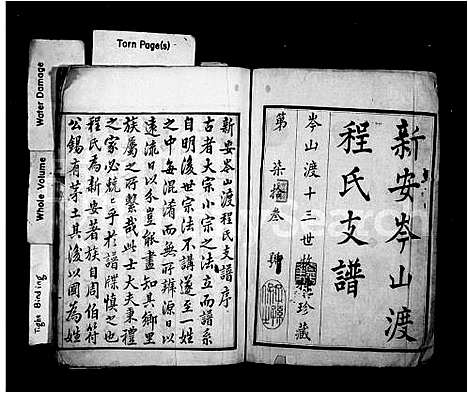 Torn Page(s)
Water Damage
Whole Volume
Tight Binding
新安岑山渡
程氏支譜
岑山渡十三世
珍藏
第柒拾叁號
新安岑山渡程氏支譜序
古者大宗小宗之法立而譜系
自明後世宗法不講遂至一姓
之中每混淆而無所辨源日以
遠流日以分豈能盡知其鄉里
族屬之所繫哉此士大夫秉禮
之家必兢兢乎於譜牒慎之也
程氏為新安著族自周伯符
公錫有茅土其後以國為姓